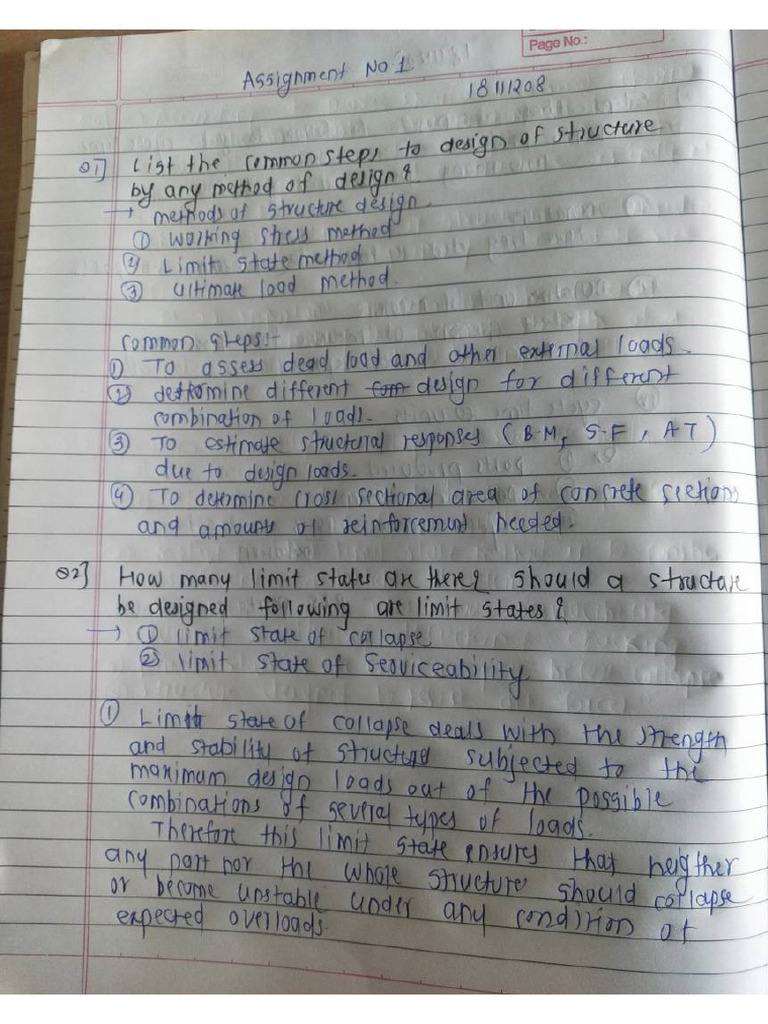 Page No.:
Assignment No 1
18111208
Q1] List the common steps to design of structure
by any method of design?
→ methods of structure design.
① Working stress method
② Limit state method
③ Ultimate load method.
Common steps:-
① To assess dead load and other external loads.
② determine different design for different
combination of loads.
③ To estimate structural responses (B.M, S.F, A.T)
due to design loads.
④ To determine cross sectional area of concrete sections
and amounts of reinforcement needed.
Q2] How many limit states are there? should a structure
be designed following are limit states?
→ ① limit state of collapse
② limit state of Serviceability
① Limit state of collapse deals with the strength
and stability of structure subjected to the
maximum design loads out of the possible
combinations of several types of loads.
Therefore this limit state ensures that neigther
any part nor the whole structure should collapse
or become unstable under any condition of
expected overloads.